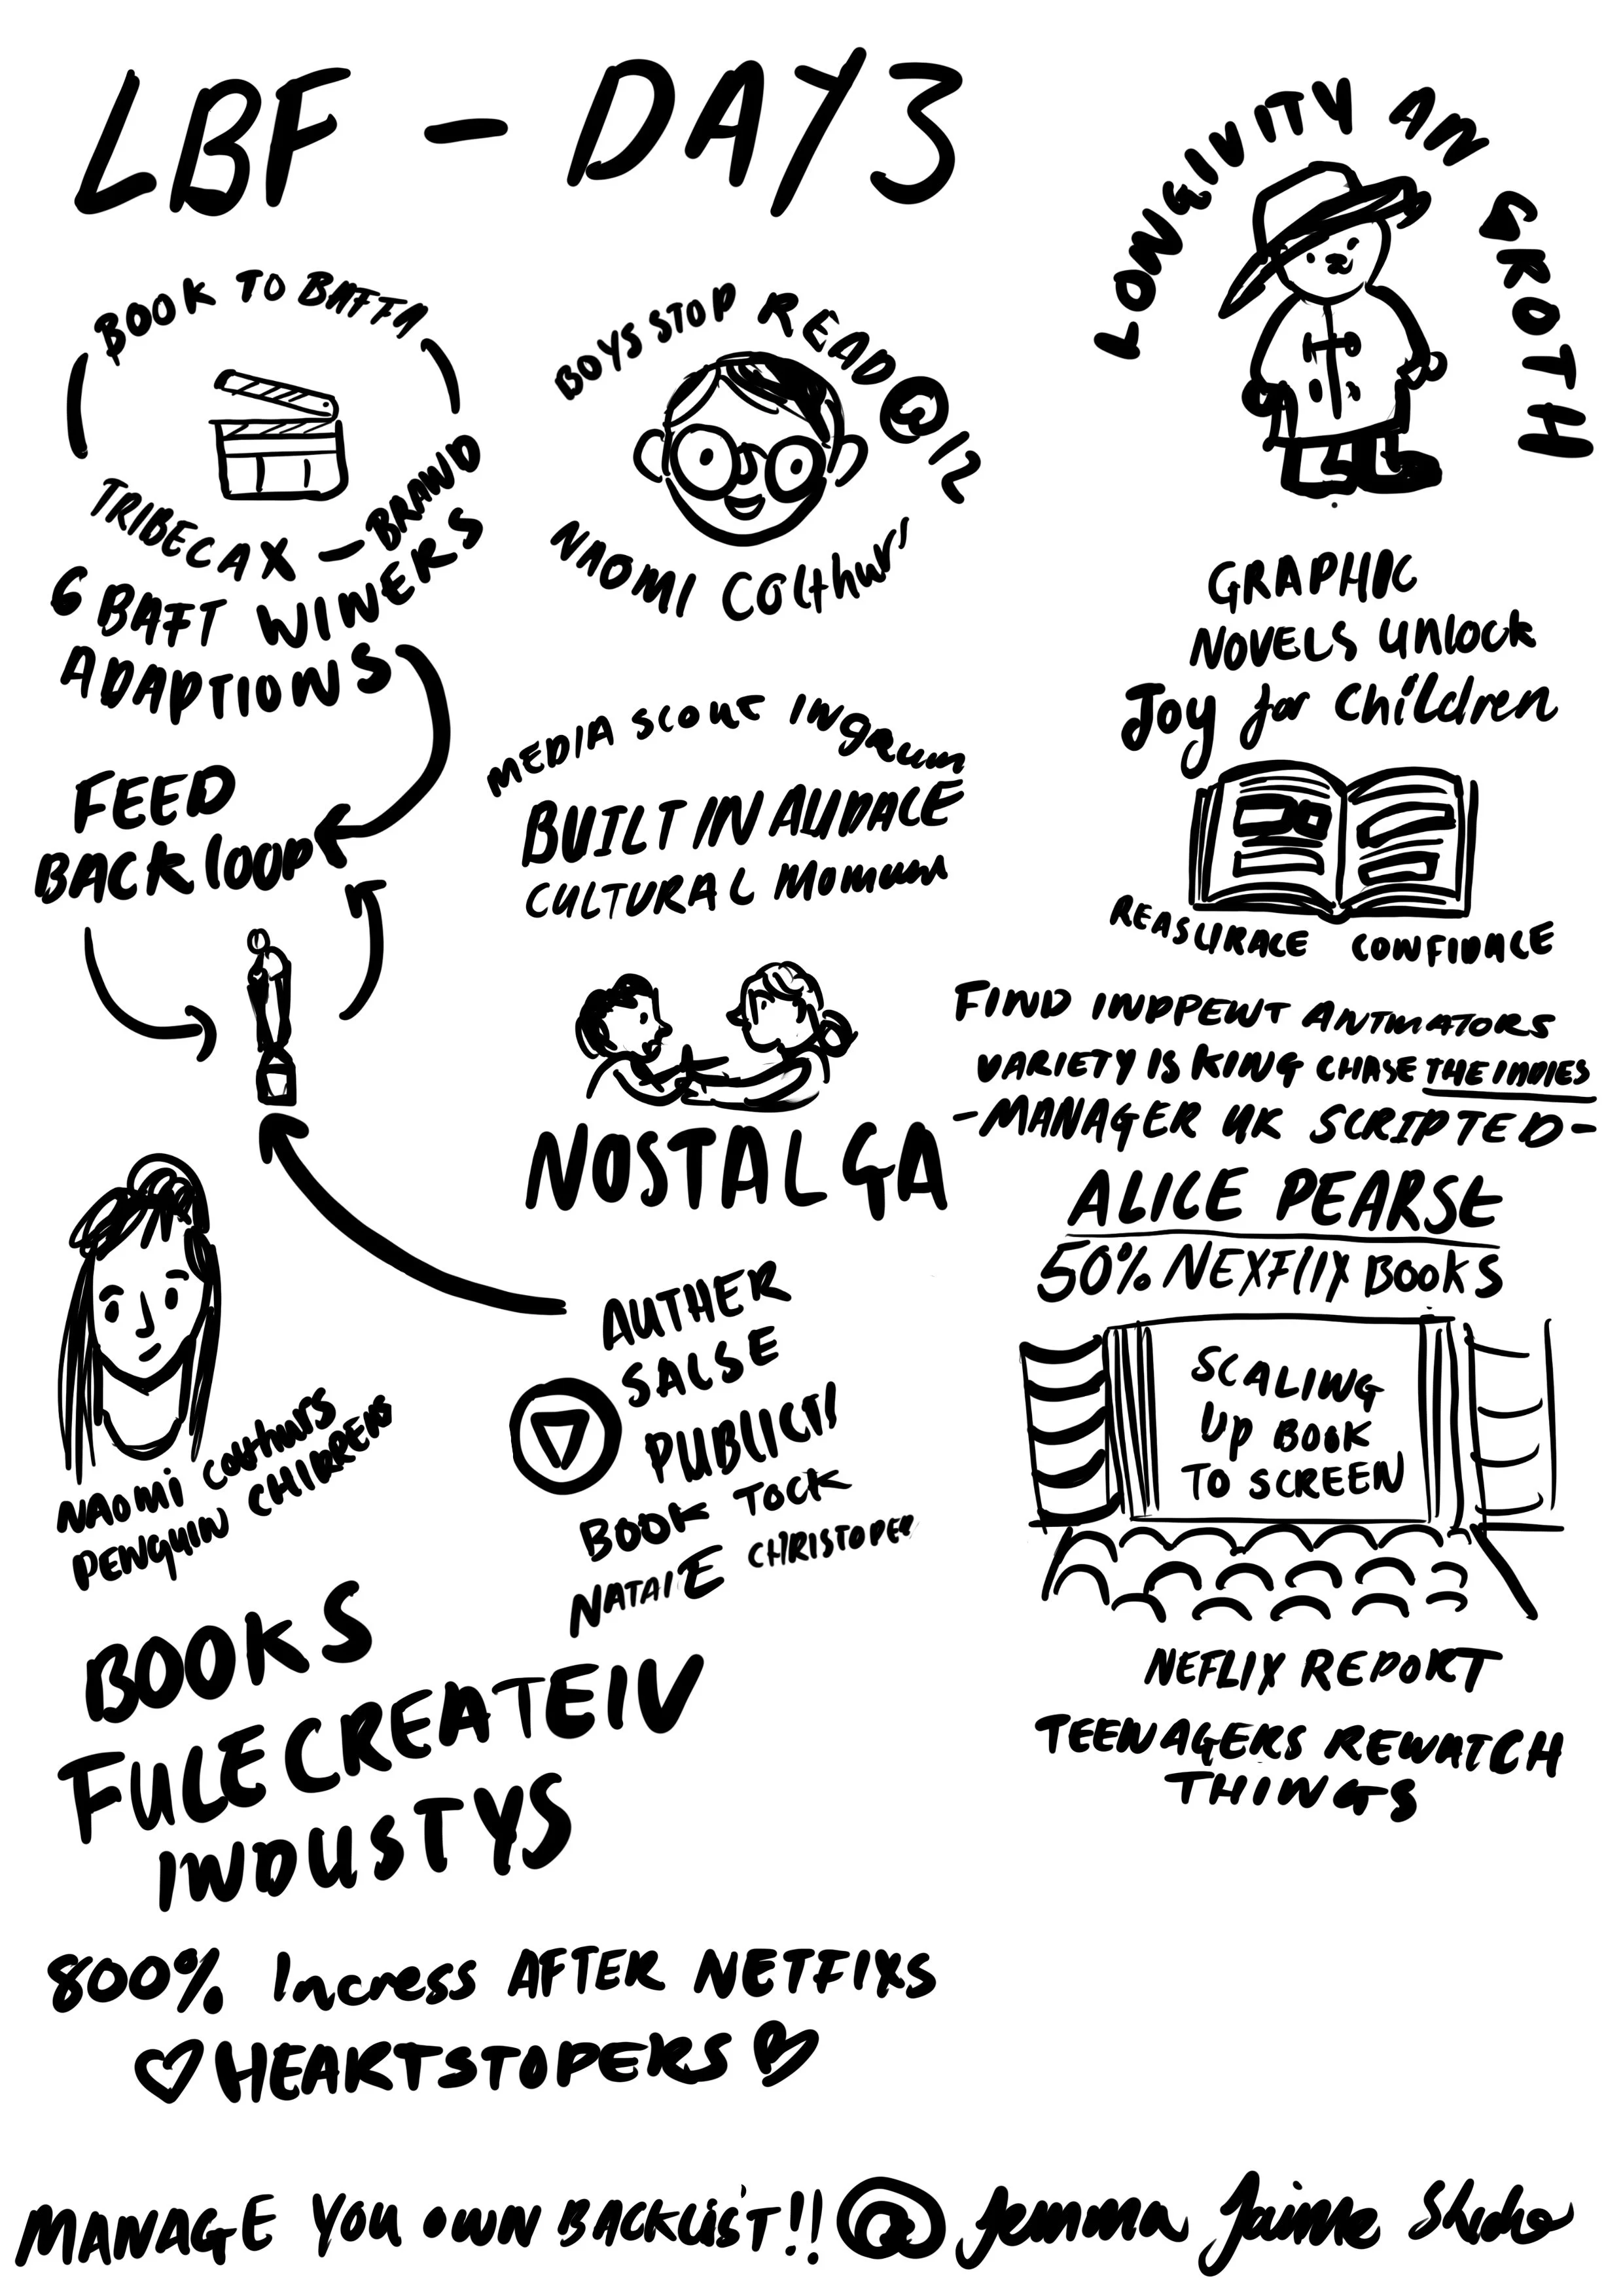 LBF - DAY 3
BOOK TO BAFTA
TRIBECA X - BRAND
6 BAFT WINERS
ADAPTIONS
FEED
BACK LOOP
NAOMI Colthurs
PENGUIN CHIRREN
BOYS STOP READ @ 12
NAOMI Colthurs
MEDIA SCOUT INgRaM
BUILT IN AUDACE
CULTURAL MOMUM
NOSTALGA
AUTHER
SALSE
PUBLICTI
BOOK TOCK
NATALE CHRISTOPER
BOOKS
FULE CREATEIV
INDUSTYS
800% Incress AFTER NETFIXS
HEARTSTOPERS
LONGIVITY AN GROTH
GRAPHIC
NOVELS unlock
Joy for Children
REASURACE CONFIDACE
FIND INDPEWT ANTMATORS
VARIETY IS KING CHASE THE INDIES
- MANAGER UK SCRIPTED -
ALICE PEARSE
50% NEXFLIX BOOKS
SCALING
UP BOOK
TO SCREEN
NEFLIX REPORT
TEENAGERS REWATCH
THINGS
MANAGE YOU OWN BACKLIST!! @ Jemma Jaime